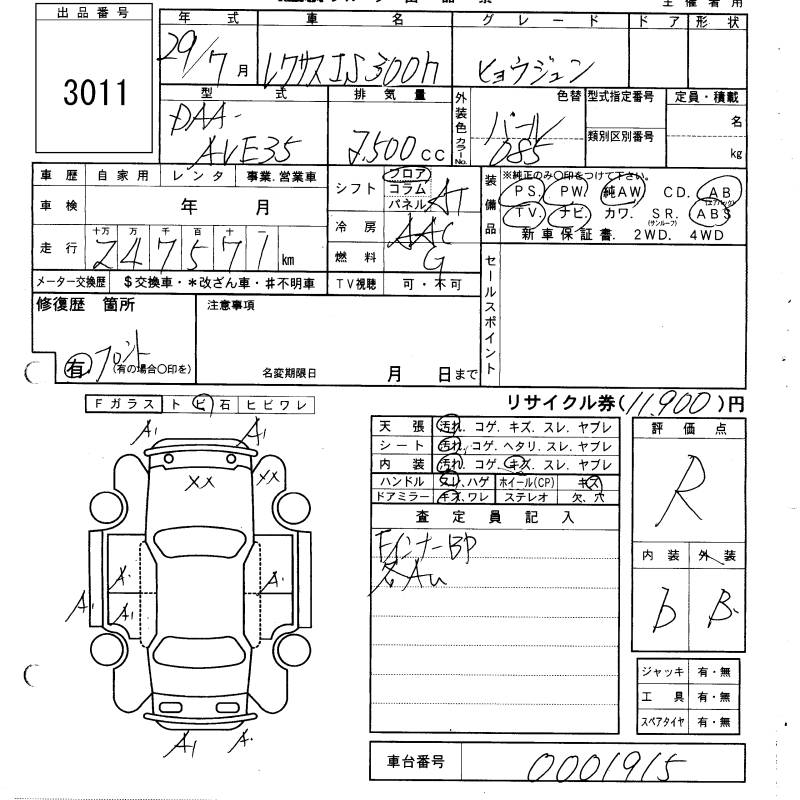 出品番号
3011
年式 車名 グレード ドア 形状
29/7月 レクサスIS300h ヒョウジュン
型式 排気量 外装色 カラーNo. 色替 型式指定番号 定員・積載
DAA-AVE35 2,500cc パール 085 類別区別番号 名 kg
車歴 自家用 レンタ 事業.営業車
車検 年 月
走行 十万 万 千 百 十 一
247571 km
メーター交換歴 $交換車・*改ざん車・#不明車
シフト フロア コラム パネル AT
冷房 AAC
燃料 G
TV視聴 可・不可
装備品 ※純正のみ〇印をつけて下さい。
PS. PW. 純AW CD. AB (エアバッグ)
TV. ナビ. カワ. SR. (サンルーフ) ABS
新車保証書. 2WD. 4WD
セールスポイント
修復歴 箇所
有 フロント
(有の場合〇印を)
注意事項
名変期限日 月 日まで
リサイクル券(11,900)円
Fガラス トビ石 ヒビワレ
A1 A1
XX XX
A. A.
A1 A1
A1 A.
天張 汚れ. コゲ. キズ. スレ. ヤブレ
シート 汚れ. コゲ. ヘタリ. スレ. ヤブレ
内装 汚れ. コゲ. キズ. スレ. ヤブレ
ハンドル スレ.ハゲ ホイール(CP) キズ
ドアミラー キズ.ワレ ステレオ 欠.穴
査定員記入
FインナーBP
名Au
評価点
R
内装 外装
D B.
ジャッキ 有・無
工具 有・無
スペアタイヤ 有・無
車台番号 0001915